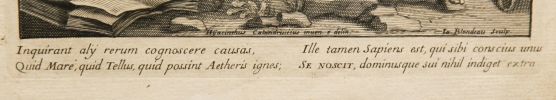 Hyacinthus Calandrucius inuen. e delin. Ia. Blondeau Sculp.
Inquirant aly rerum cognoscere causas,
Quid Mare, quid Tellus, quid possint Aetheris ignes;
Ille tamen Sapiens est, qui sibi conscius unus
SE NOSCIT, dominusque sui nihil indiget extra